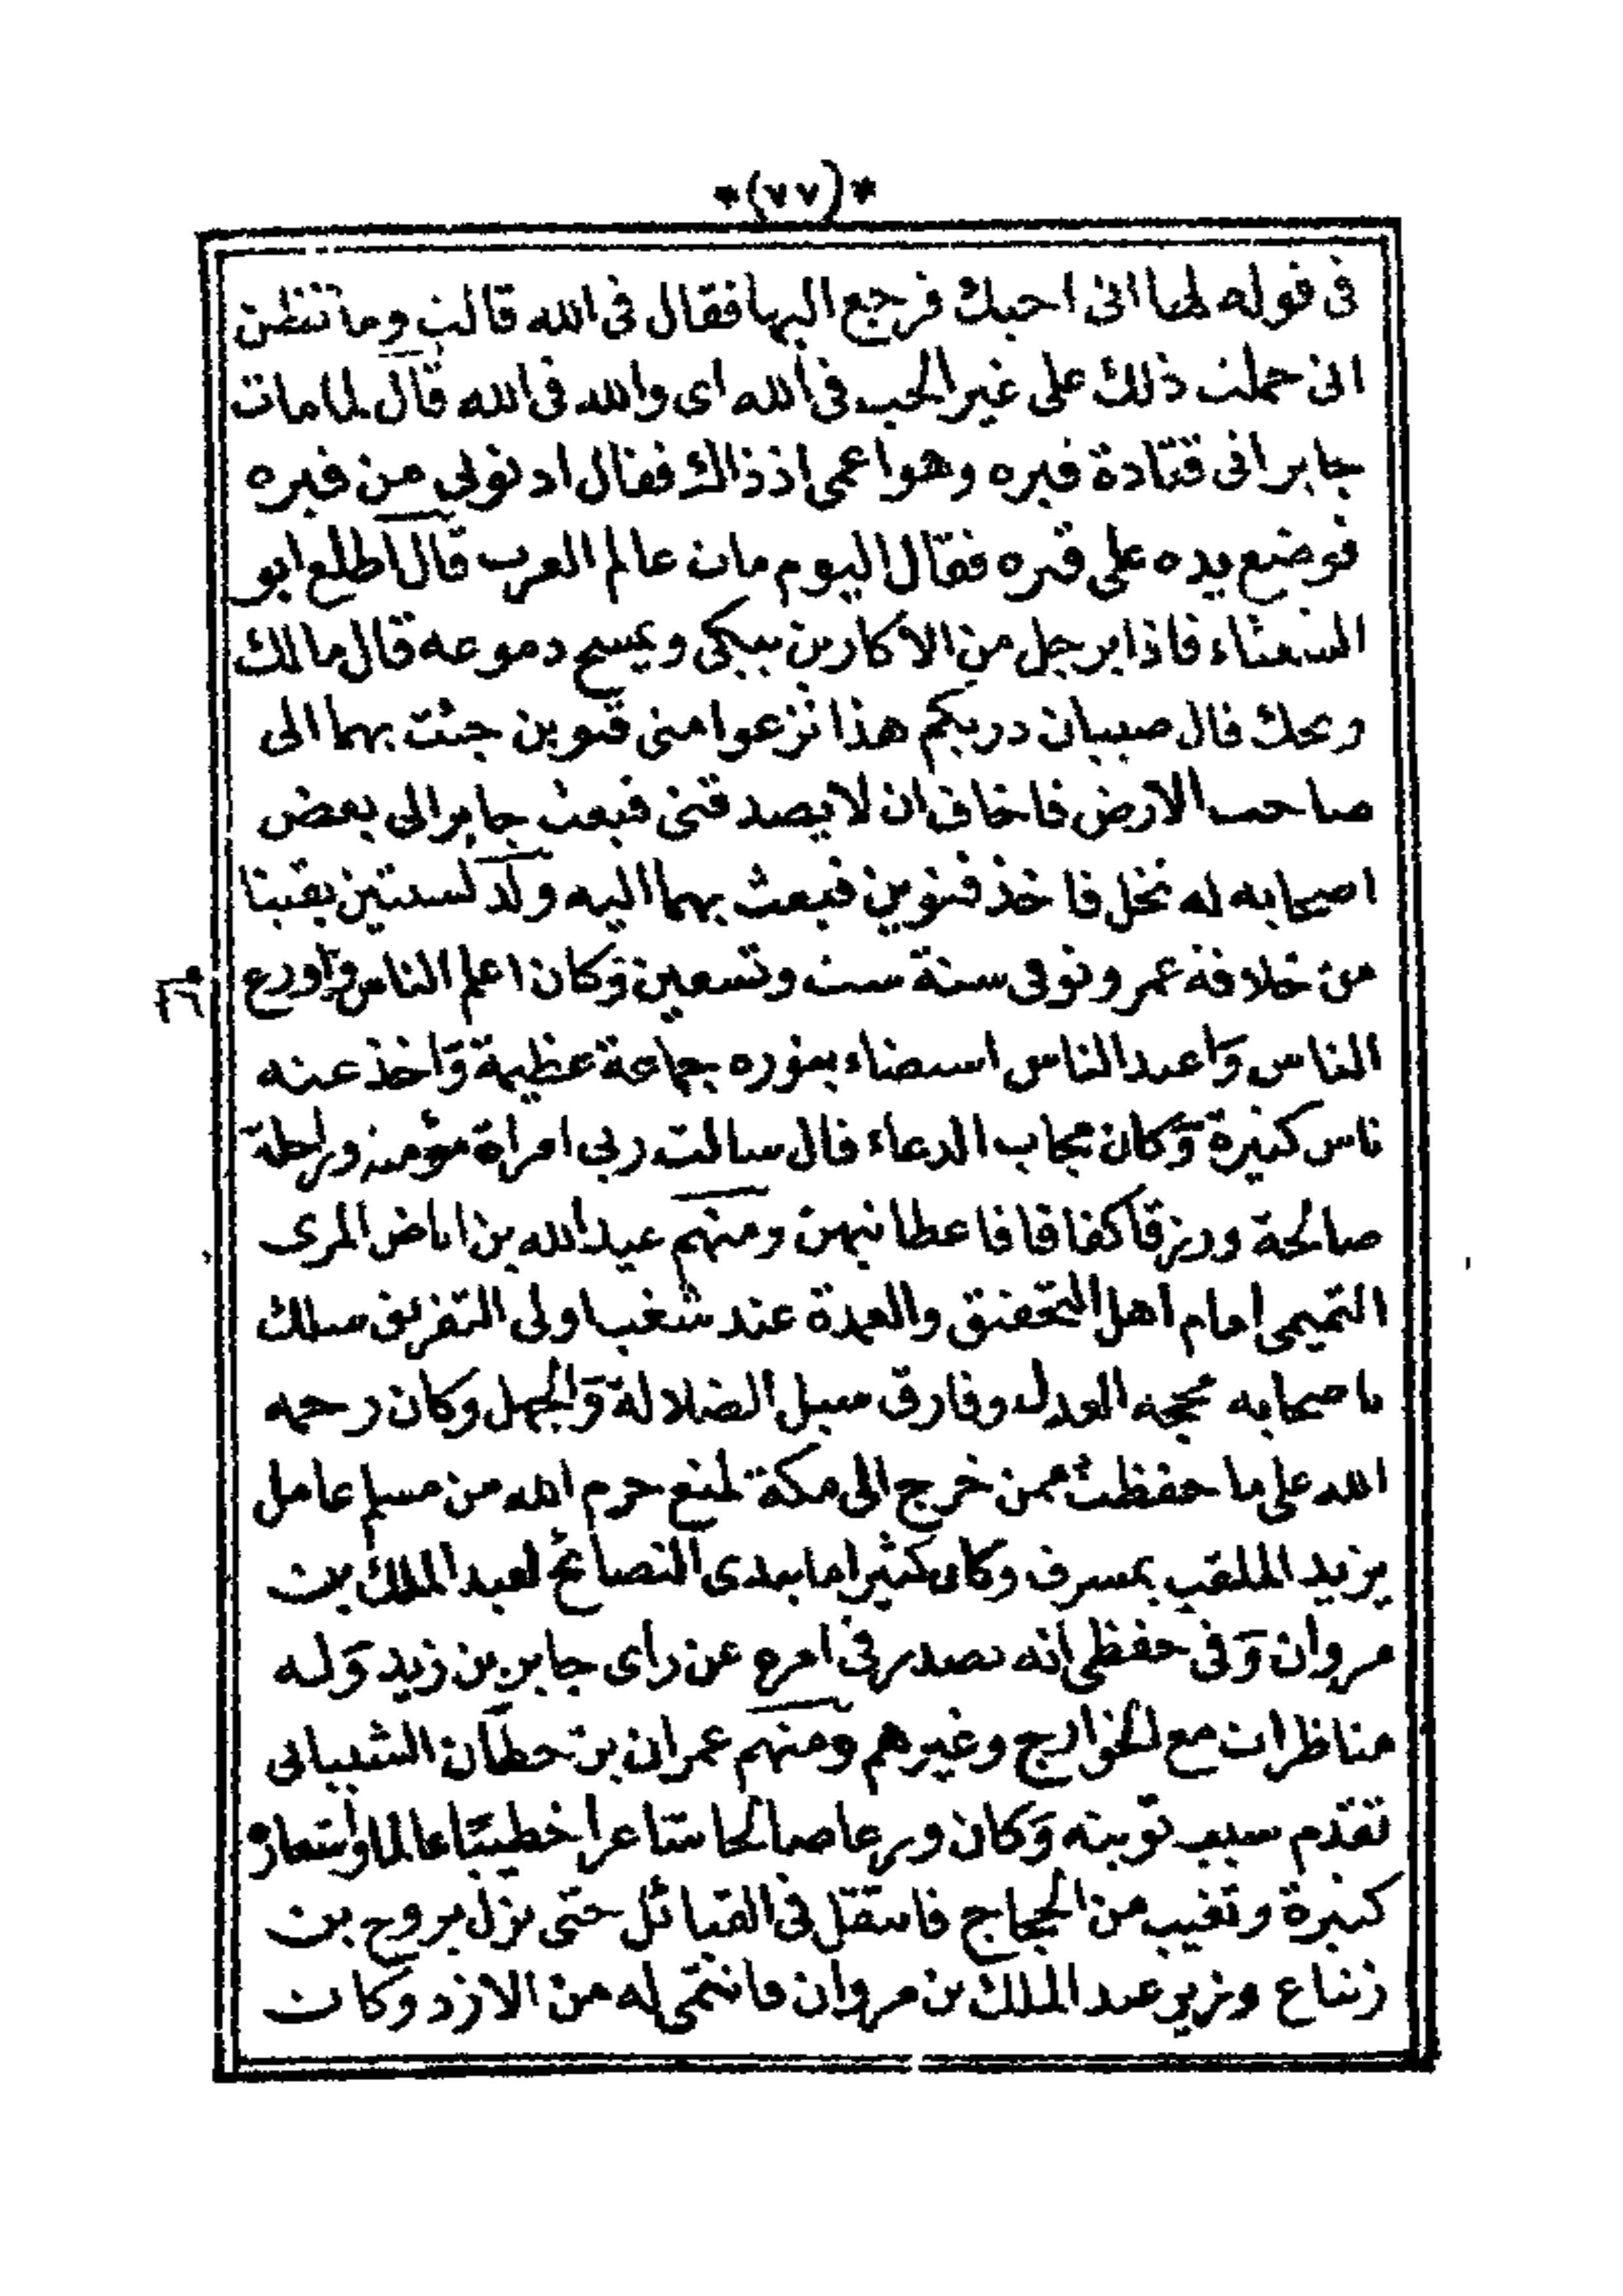 *(٧٧)*
فى قوله لها انى احبك فرجع اليها فقال فى الله قالت وما تنظن
انى حملت ذلك على غير الحب فى الله اى والله فى الله قال لما مات
جابر اتى قتادة قبره وهو اعمى اذ ذاك فقال ادنونى من قبره
فوضع يده على قبره فقال اليوم مات عالم العرب قال اطلع ابو
الشعثاء فاذا برجل من الاكارين يبكى ويمسح دموعه قال مالك
ويحك قال صبيان دربكم هذا نزعوا منى قنوين جئت بهما الى
صاحب الارض فاخاف ان لا يصدقنى فبعث جابر الى بعض
اصحابه له نخل فاخذ قنوين فبعث بهما اليه ولد لسنتين بقيتا
من خلافة عمر وتوفى سنة ست وتسعين وكان اعلم الناس واورع
٩٦
الناس واعبد الناس استضاء بنوره جماعة عظيمة واخذ عنه
ناس كثيرة وكان مجاب الدعاء قال سالت ربى امراة مؤمنة وراحلة
صالحة ورزقا كفافا فاعطانيهن ومنهم عبد الله بن اباض المرى
التميمى امام اهل التحقيق والعمدة عند شغب اولى التفريق سلك
باصحابه محجة العدل وفارق سبل الضلالة والجهل وكان رحمه
الله على ما حفظت ممن خرج الى مكة لمنع حرم الله من مسلم عامل
يزيد الملقب بمسرف وكان كثيرا ما يبدى النصائح لعبد الملك بن
مروان وفى حفظى انه يصدر فى امره عن راى جابر بن زيد وله
مناظرات مع الخوارج وغيرهم ومنهم عمران بن حطان الشيبانى
تقدم سبب توبته وكان ورعا صالحا شاعرا خطيبا عالما واشعاره
كثيرة وتغيب من الحجاج فانتقل فى القبائل حتى نزل بروح بن
زنباع وزير عبد الملك بن مروان فانتمى له من الازد وكان